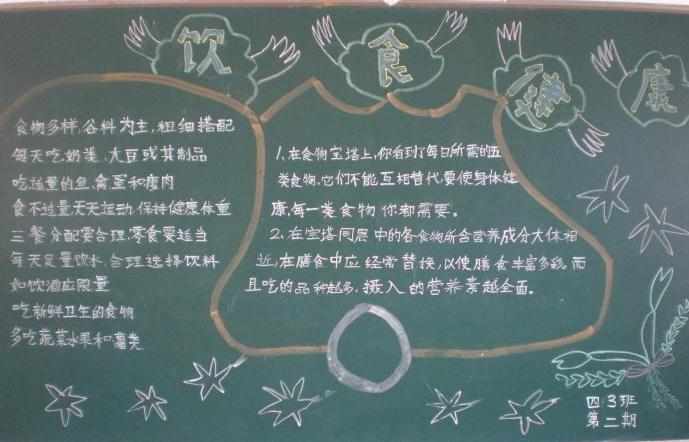 饮食健康
食物多样,谷料为主,粗细搭配
每天吃奶类、大豆或其制品
吃适量的鱼、禽蛋和瘦肉
食不过量天天运动,保持健康体重
三餐分配要合理,零食要适当
每天足量饮水,合理选择饮料
如饮酒应限量
吃新鲜卫生的食物
多吃蔬菜水果和薯类
1.在食物宝塔上,你看到了每日所需的五
类食物,它们不能互相替代,要使身体健
康,每一类食物你都需要。
2.在宝塔同层中的各食物所含营养成分大体相
近,在膳食中应经常替换,以使膳食丰富多彩,而
且吃的品种越多,摄入的营养素越全面。
四.3班
第二期